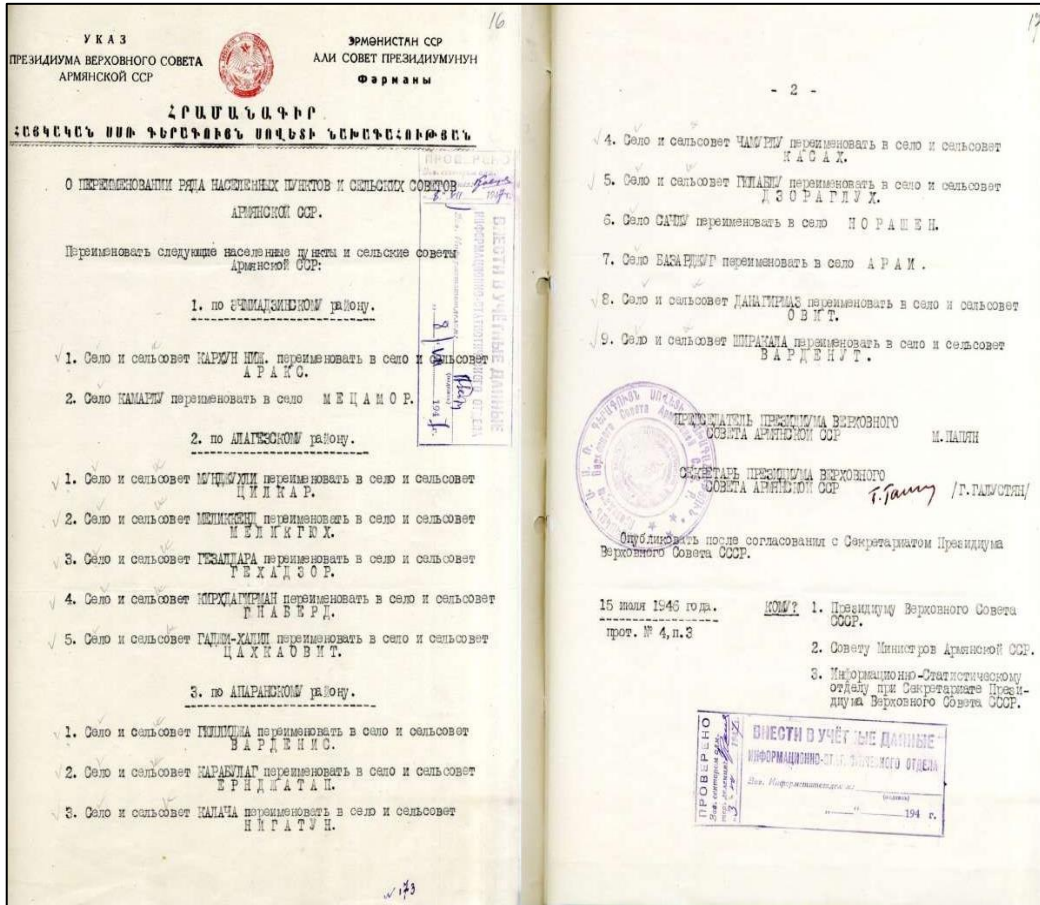 16
УКАЗ
ПРЕЗИДИУМА ВЕРХОВНОГО СОВЕТА
АРМЯНСКОЙ ССР
ЭРМƏНИСТАН ССР
АЛИ СОВЕТ ПРЕЗИДИУМУНУН
Фəрманы
ՀՐԱՄԱՆԱԳԻՐ
ՀԱՅԿԱԿԱՆ ՍՍՌ ԳԵՐԱԳՈՒՅՆ ՍՈՎԵՏԻ ՆԱԽԱԳԱՀՈՒԹՅԱՆ
О ПЕРЕИМЕНОВАНИИ РЯДА НАСЕЛЕННЫХ ПУНКТОВ И СЕЛЬСКИХ СОВЕТОВ
АРМЯНСКОЙ ССР.
Переименовать следующие населенные пункты и сельские советы
Армянской ССР:
1. по ЭЧМИАДЗИНСКОМУ району.
1. Село и сельсовет КАРХУН НИЖ. переименовать в село и сельсовет
АРАКС.
2. Село КАМАРЛУ переименовать в село МЕЦАМОР.
2. по АЛАГЕЗСКОМУ району.
1. Село и сельсовет МУНДЖУХЛИ переименовать в село и сельсовет
ЦИЛКАР.
2. Село и сельсовет МЕЛИККЕНД переименовать в село и сельсовет
МЕЛИКГЮХ.
3. Село и сельсовет ГЕЗАЛДАРА переименовать в село и сельсовет
ГЕХАДЗОР.
4. Село и сельсовет КИРХДАГИРМАН переименовать в село и сельсовет
ГНАБЕРД.
5. Село и сельсовет ГАДЖИ-ХАЛИЛ переименовать в село и сельсовет
ЦАХКАОВИТ.
3. по АПАРАНСКОМУ району.
1. Село и сельсовет ГЮЛЛИДЖА переименовать в село и сельсовет
ВАРДЕНИС.
2. Село и сельсовет КАРАБУЛАГ переименовать в село и сельсовет
ЕРНДЖАТАП.
3. Село и сельсовет КАЛАЧА переименовать в село и сельсовет
НИГАТУН.
N 173
ПРОВЕРЕНО
ВНЕСТИ В УЧЁТНЫЕ ДАННЫЕ
ИНФОРМАЦИОННО-СТАТИСТИЧЕСКОГО ОТДЕЛА
17
- 2 -
4. Село и сельсовет ЧАМУРЛУ переименовать в село и сельсовет
КАСАХ.
5. Село и сельсовет ГЮЛАБЛУ переименовать в село и сельсовет
ДЗОРАГЛУХ.
6. Село САЧЛУ переименовать в село НОРАШЕН.
7. Село БАЗАРДЖУГ переименовать в село АРАИ.
8. Село и сельсовет ДАНАГИРМАЗ переименовать в село и сельсовет
ОВИТ.
9. Село и сельсовет ШИРАКАЛА переименовать в село и сельсовет
ВАРДЕНУТ.
ПРЕДСЕДАТЕЛЬ ПРЕЗИДИУМА ВЕРХОВНОГО
СОВЕТА АРМЯНСКОЙ ССР М.ПАПЯН
СЕКРЕТАРЬ ПРЕЗИДИУМА ВЕРХОВНОГО
СОВЕТА АРМЯНСКОЙ ССР /Г.ГАЛУСТЯН/
Опубликовать после согласования с Секретариатом Президиума
Верховного Совета СССР.
15 июля 1946 года.
прот. № 4,п.3
КОМУ? 1. Президиуму Верховного Совета
СССР.
2. Совету Министров Армянской ССР.
3. Информационно-Статистическому
отделу при Секретариате Прези-
диума Верховного Совета СССР.
ПРОВЕРЕНО
ВНЕСТИ В УЧЁТНЫЕ ДАННЫЕ
ИНФОРМАЦИОННО-СТАТИСТИЧЕСКОГО ОТДЕЛА
194 г.